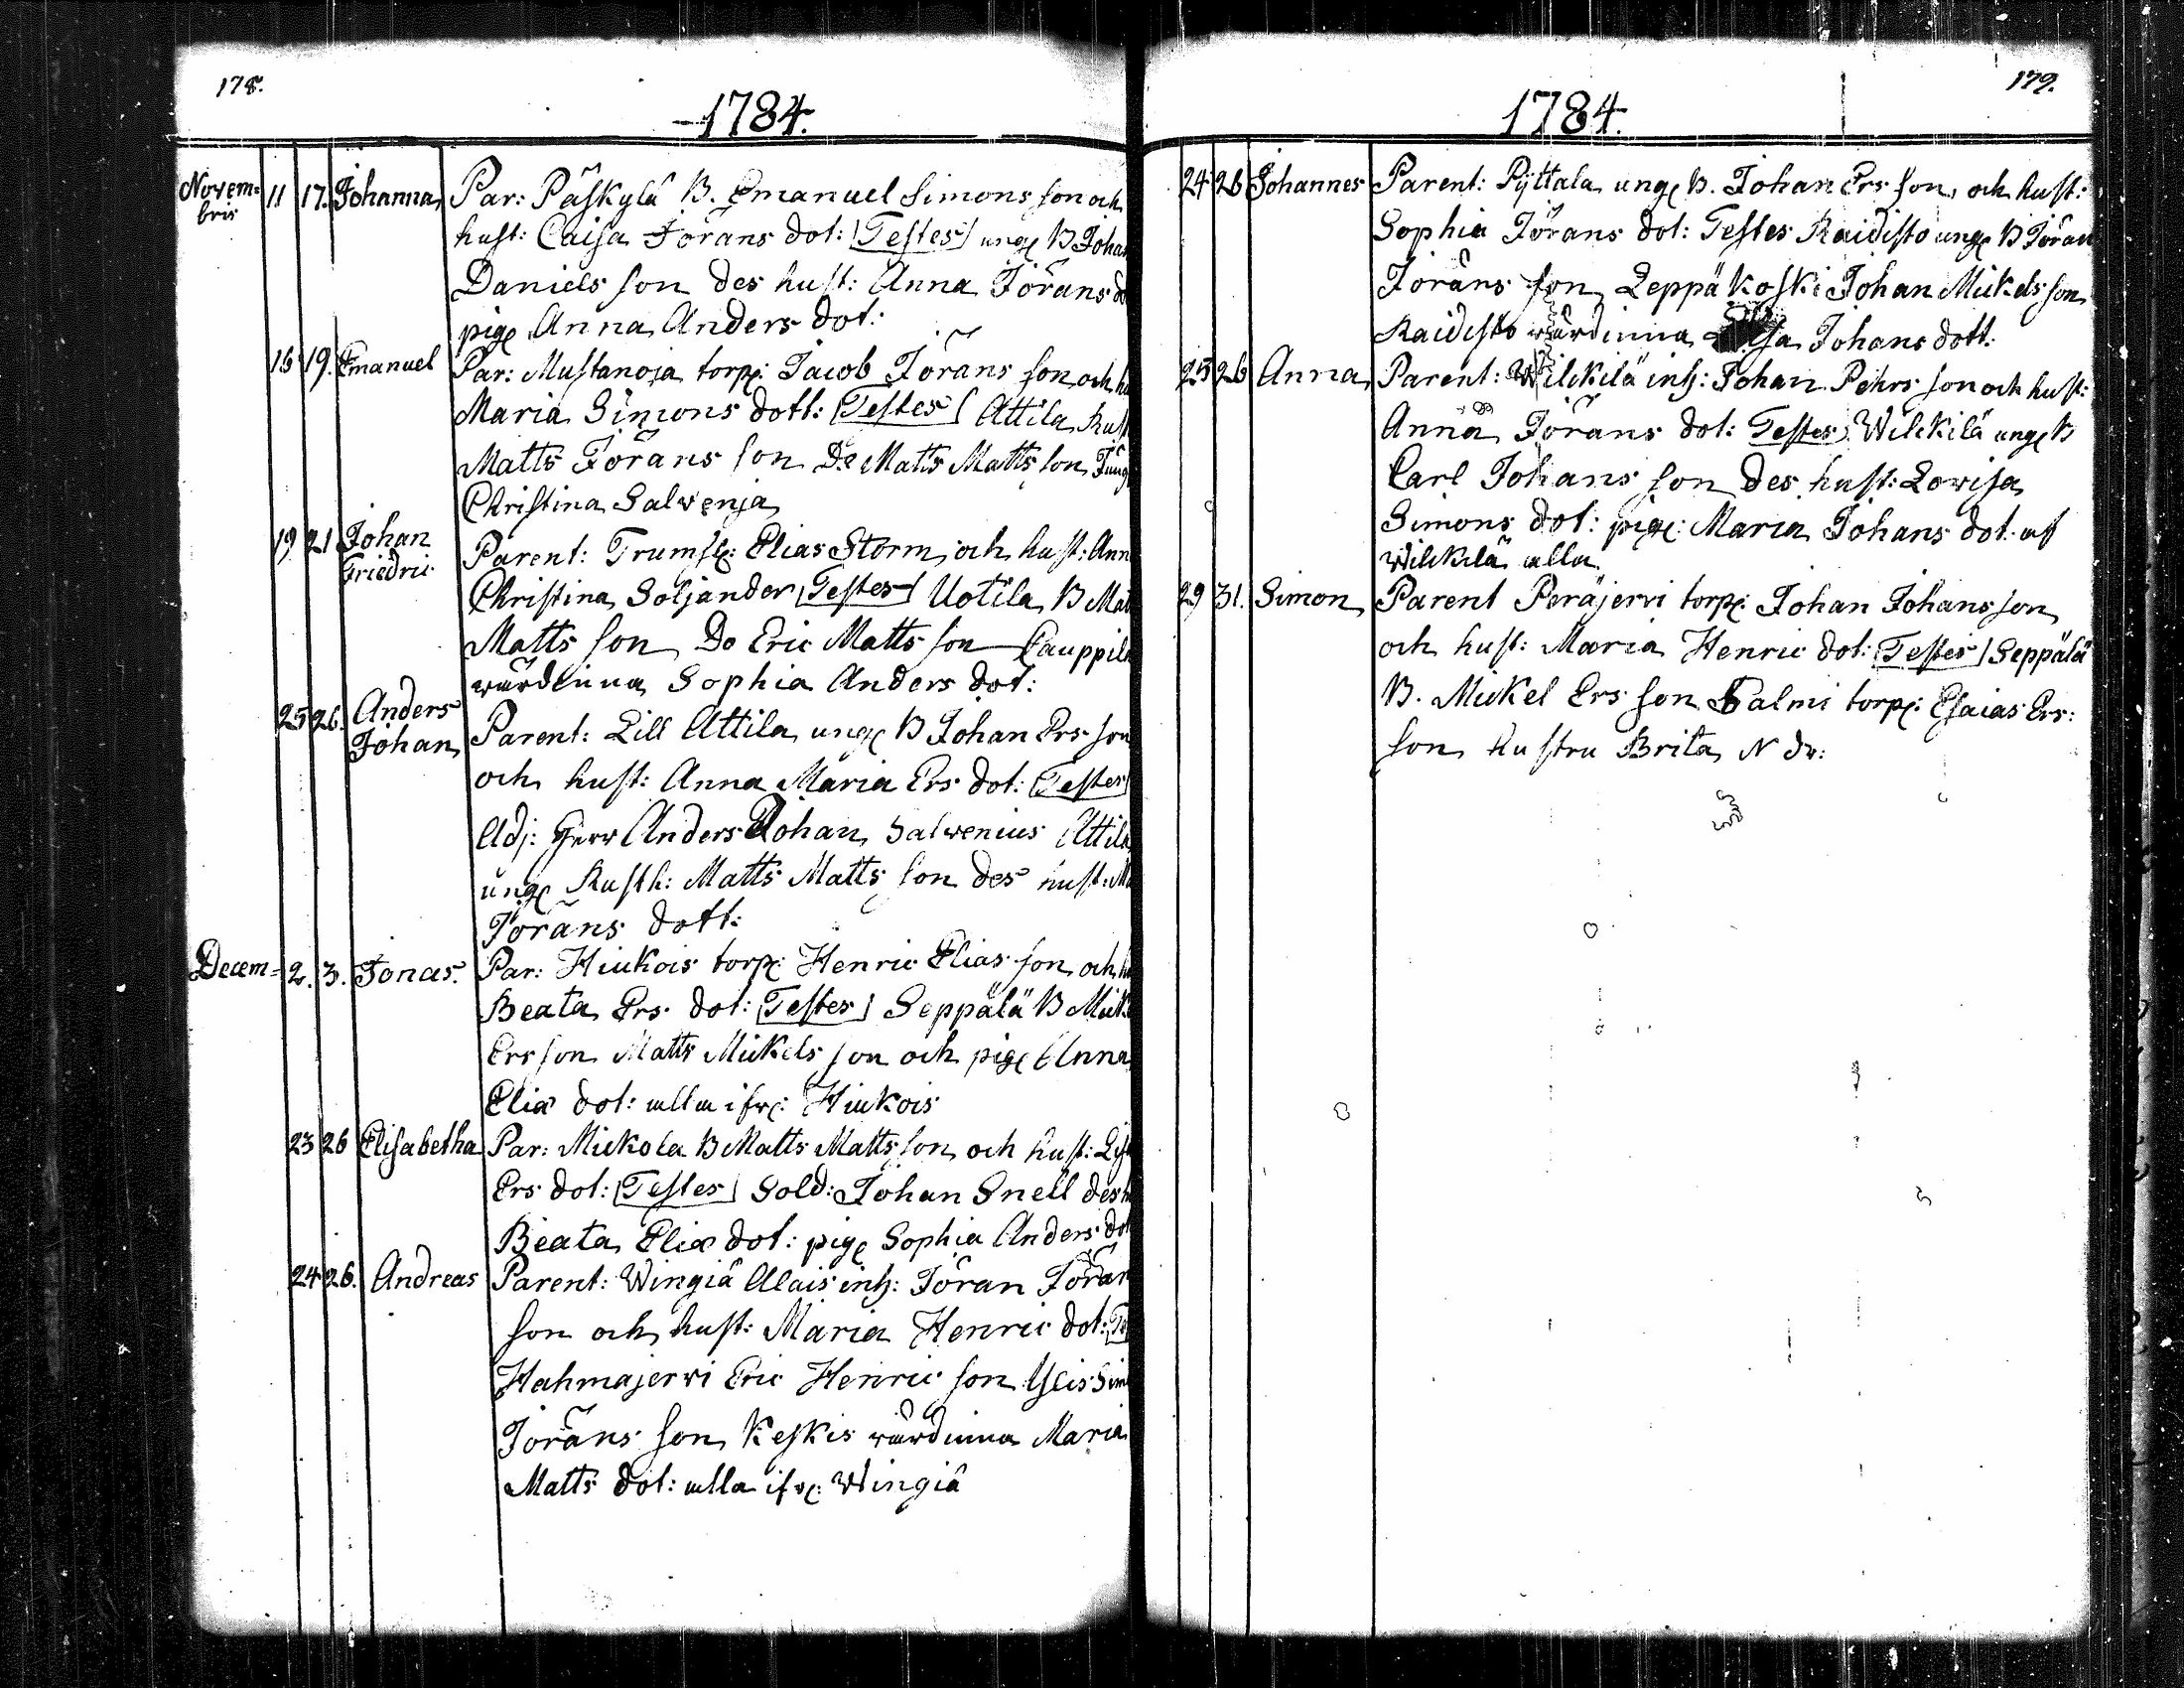 178.
1784.
Novem=
bris
11 17. Johanna Par: Päskylä B. Emanuel Simons son och
hust: Caisa Jörans dot: Testes ung B Johan
Daniels son des hust: Anna Jörans do
pig Anna Anders dot:
16 19. Emanuel Par: Mustanoja torp: Jacob Jörans son och hu
Maria Simons dott: Testes Attila Rust
Matts Jörans son Do Matts Matts son Jung
Christina Salvenia
19 21 Johan
Friedric
Parent: Trumsl: Elias Storm och hust: Ann
Christina Soljander Testes Uotila B Mat
Matts son Do Eric Matts son Cauppila
wärdinna Sophia Anders dot:
25 26. Anders
Johan
Parent: Lill Attila ung B Johan Ers son
och hust: Anna Maria Ers dot: Testes
Adj: Herr Anders Johan Salvenius Attila
ung Rusth: Matts Matts son des hust: Ma
Jörans dott:
Decem= 2. 3. Jonas. Par: Hiukois torp: Henric Elias son och hu
Beata Ers dot: Testes Seppälä B Mick
Ers son Matts Mickels son och pig Anna
Eliæ dot: alla ifr: Hiukois
23 26 Elisabetha Par: Mickola B Matts Matts son och hust: Lis
Ers dot: Testes Sold: Johan Snell des h
Beata Eliæ dot: pig Sophia Anders dot
24 26. Andreas Parent: Wingiä Alais inh: Jöran Jöran
son och hust: Maria Henric dot: Te
Hahmajervi Eric Henric son Yleis Sim
Jörans son Keskis wärdinna Maria
Matts dot: alla ifr: Wingiä
179.
1784.
24 26 Johannes Parent: Pyttala ung B. Johan Ers son och hust:
Sophia Jörans dot: Testes Raidisto ung B Jöran
Jörans son Leppäkoski Johan Mickels son
Raidisto wärdinna Johans dott.
25 26 Anna Parent: Wilckilä inh: Johan Pehrs son och hust:
Anna Jörans dot: Testes Wilckilä ung B
Carl Johans son des hust: Lovisa
Simons dot: pig: Maria Johans dot. af
Wilckilä alla
29 31. Simon Parent Peräjervi torp: Johan Johans son
och hust: Maria Henric dot: Testes Seppälä
B. Mickel Ers son Salmi torp: Esaias Ers:
son hustru Brita N dr: